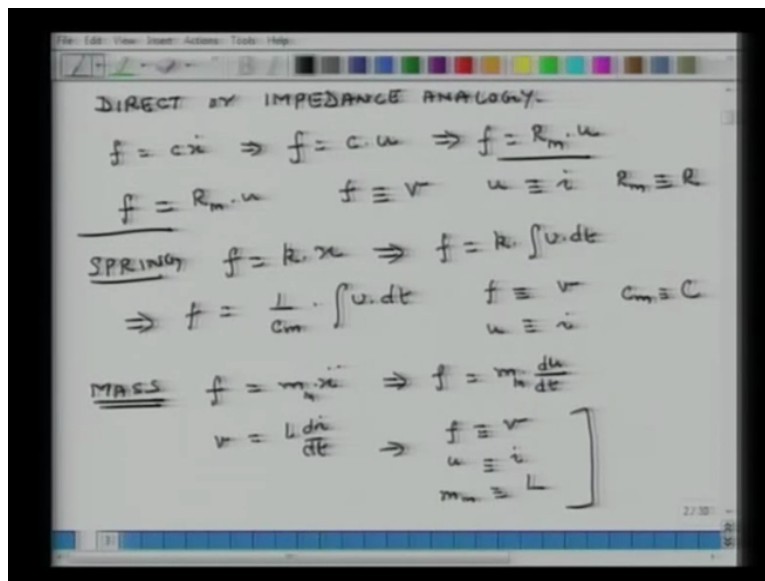 File Edit View Insert Actions Tools Help
DIRECT or IMPEDANCE ANALOGY.
f = cẋ ⇒ f = c.u ⇒ f = Rm.u
f = Rm.u f ≡ v u ≡ i Rm ≡ R
SPRING f = k.x ⇒ f = k.∫u.dt
⇒ f = 1/Cm . ∫u.dt f ≡ v Cm ≡ C
u ≡ i
MASS f = mm.ẍ ⇒ f = mm du/dt
v = L di/dt ⇒ f ≡ v
u ≡ i
mm ≡ L
2/30
3